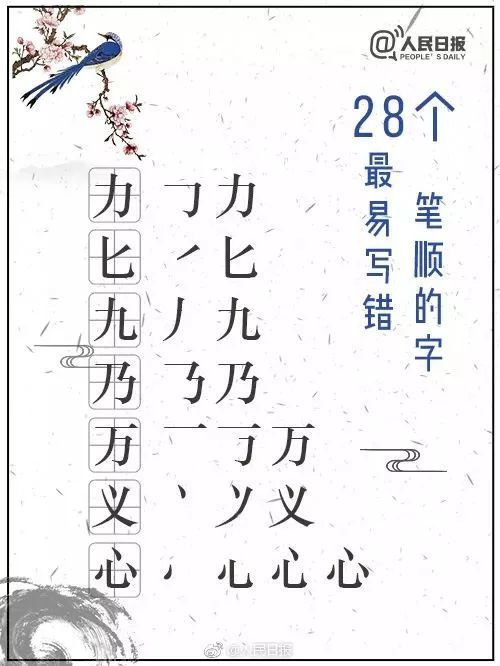 @人民日报
PEOPLE'S DAILY
28个
最易写错
笔顺的字
力 ㇆ 力
匕 ㇒ 匕
九 丿 九
乃 ㇋ 乃
万 一 丆 万
义 丶 ソ 义
心 丶 心 心 心
@人民日报